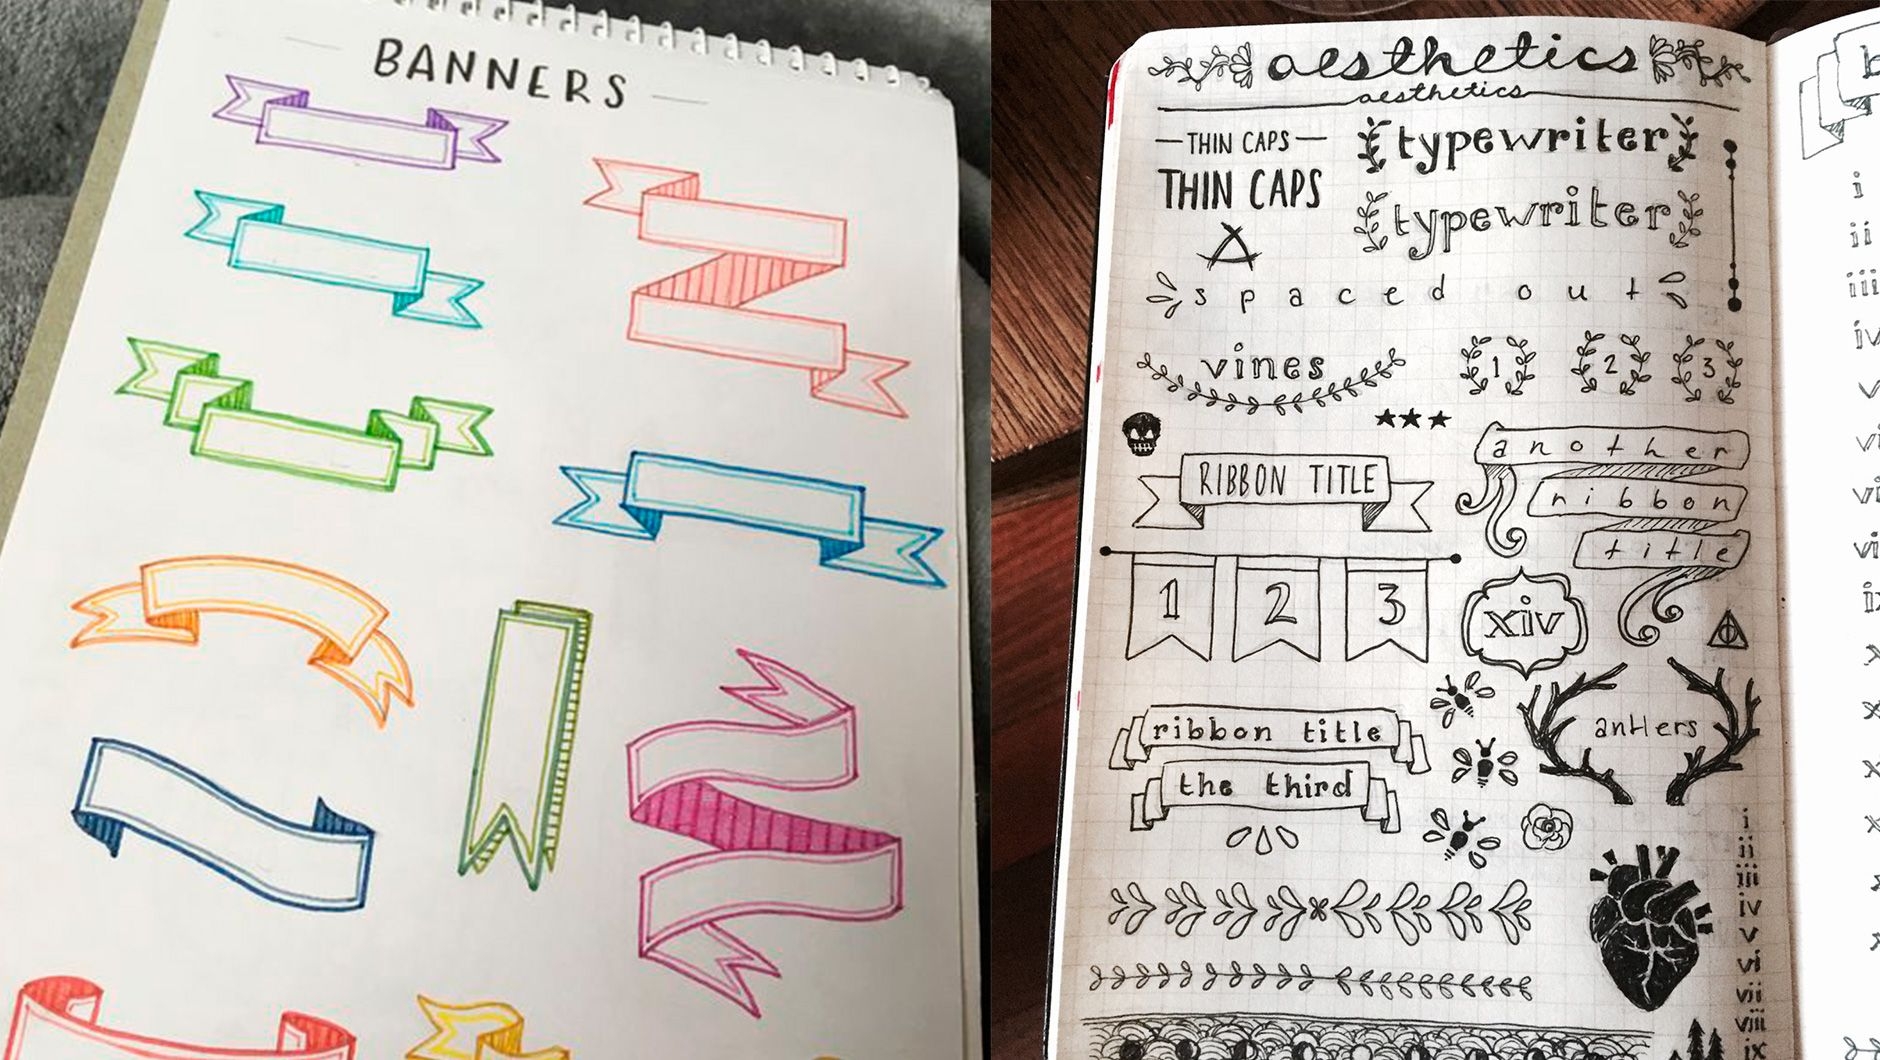 BANNERS
aesthetics
aesthetics
THIN CAPS
typewriter
THIN CAPS
typewriter
spaced out
vines
1 2 3
another
RIBBON TITLE
ribbon
title
1 2 3
xiv
antlers
ribbon title
the third
i
ii
iii
iv
v
vi
vii
viii
ix
i
ii
iii